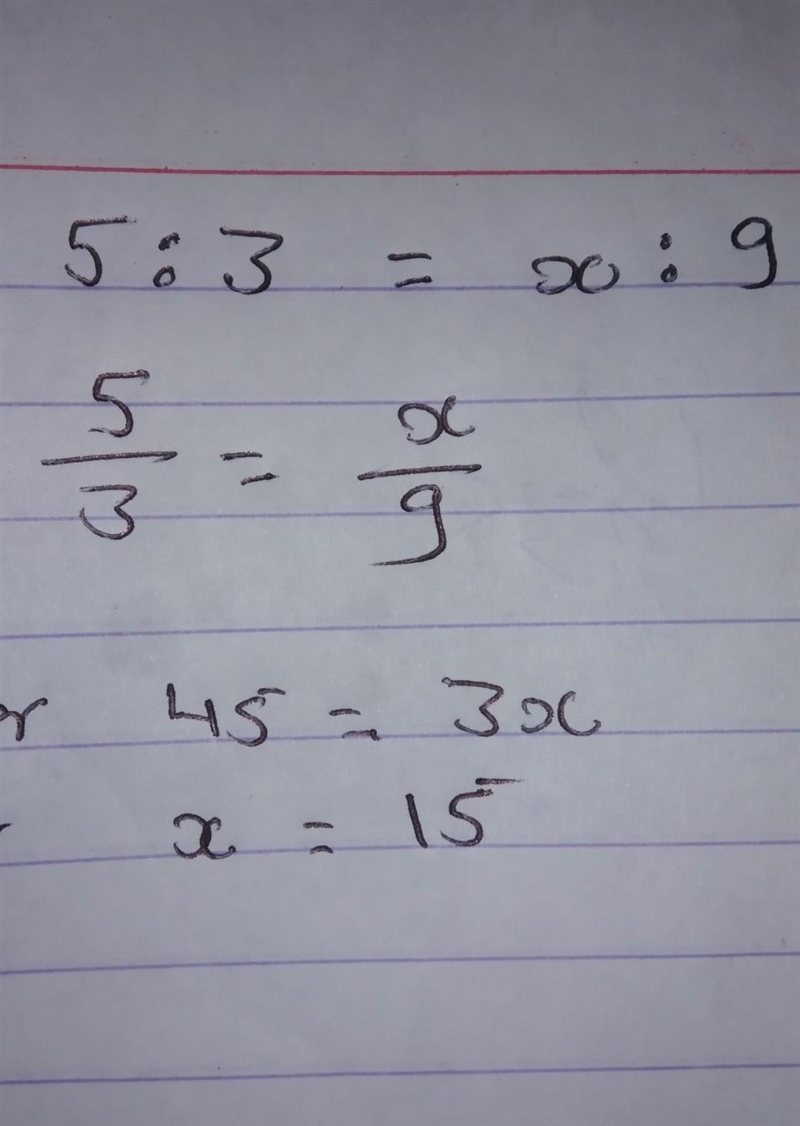 5 : 3 = x : 9
5/3 = x/9
45 = 3x
x = 15